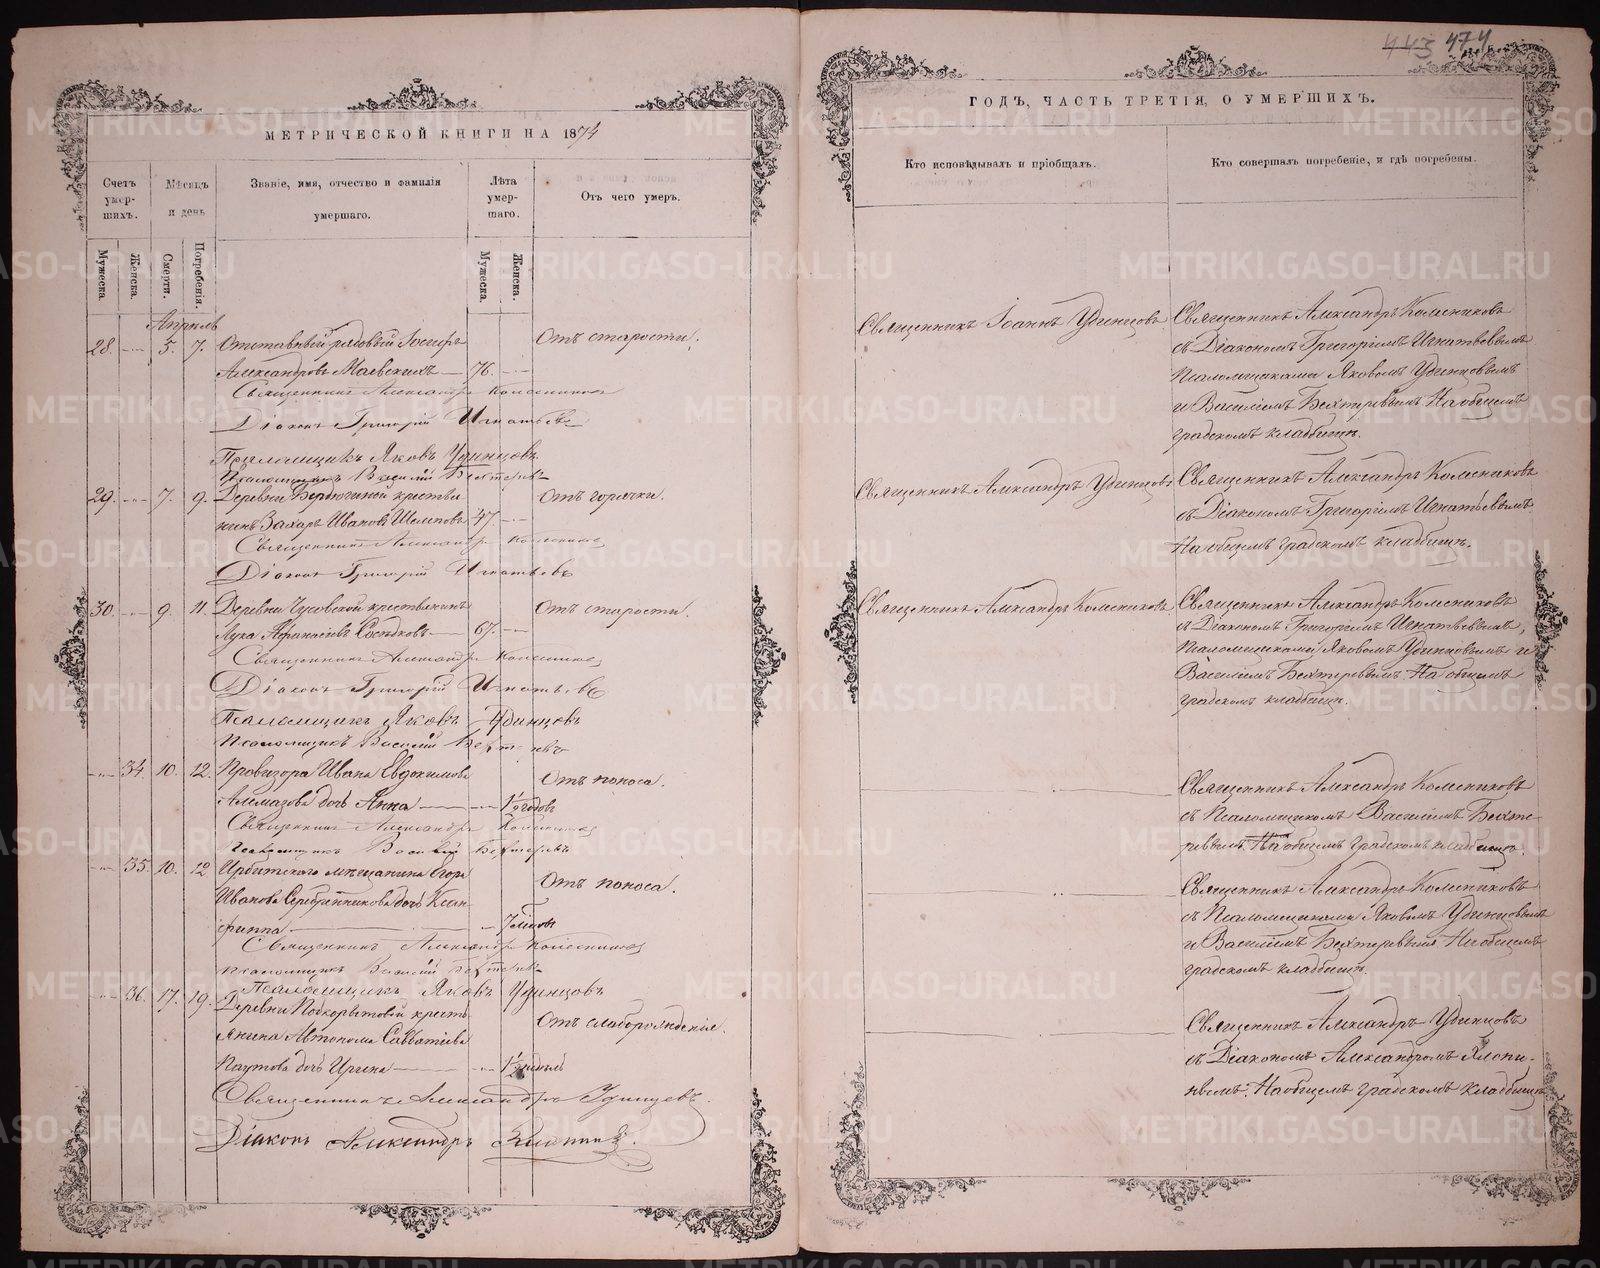 443 474
МЕТРИЧЕСКОЙ КНИГИ НА 1874
ГОДЪ, ЧАСТЬ ТРЕТІЯ, О УМЕРШИХЪ.
Счетъ умер-шихъ.
Мѣсяцъ и день
Званіе, имя, отчество и фамилія умершаго.
Лѣта умер-шаго.
Отъ чего умеръ.
Кто исповѣдывалъ и пріобщалъ.
Кто совершалъ погребеніе, и гдѣ погребены.
Мужеска. Женска. Смерти. Погребенія. Мужеска. Женска.
Апрѣль
28. 5. 7. Отставный рядовый Іосифъ
Александровъ Маевскихъ 76.
Отъ старости.
Священникъ Александръ Колесниковъ
Діаконъ Григорій Игнатьевъ
Псаломщикъ Яковъ Удинцовъ
Псаломщикъ Василій Бехтеревъ
Священникъ Іоаннъ Удинцовъ
Священникъ Александръ Колесниковъ
съ Діакономъ Григоріемъ Игнатьевымъ
Псаломщиками Яковомъ Удинцовымъ
и Василіемъ Бехтеревымъ На общемъ
градскомъ кладбищѣ.
29. 7. 9. Деревни крестья-
нинъ Захаръ Ивановъ Шелиповъ 47.
Отъ горячки.
Священникъ Александръ Колесниковъ
Діаконъ Григорій Игнатьевъ
Священникъ Александръ Удинцовъ
Священникъ Александръ Колесниковъ
съ Діакономъ Григоріемъ Игнатьевымъ
На общемъ градскомъ кладбищѣ.
30. 9. 11. Деревни Чусовской крестьянинъ
Лука Афанасіевъ Сосѣдковъ 67.
Отъ старости.
Священникъ Александръ Колесниковъ
Діаконъ Григорій Игнатьевъ
Псаломщикъ Яковъ Удинцовъ
Псаломщикъ Василій Бехтеревъ
Священникъ Александръ Колесниковъ
Священникъ Александръ Колесниковъ
съ Діакономъ Григоріемъ Игнатьевымъ,
Псаломщиками Яковомъ Удинцовымъ и
Василіемъ Бехтеревымъ На общемъ
градскомъ кладбищѣ.
34. 10. 12. Провизора Ивана Евдокимова
Алмазова дочь Анна 1½ годовъ
Отъ поноса.
Священникъ Александръ Колесниковъ
Псаломщикъ Василій Бехтеревъ
Священникъ Александръ Колесниковъ
съ Псаломщикомъ Василіемъ Бехте-
ревымъ. На общемъ градскомъ кладбищѣ.
35. 10. 12 Ирбитского мѣщанина Егора
Иванова Серебренникова дочь Ксан-
фиппа
Отъ поноса.
Священникъ Александръ Колесниковъ
Псаломщикъ Василій Бехтеревъ
Псаломщикъ Яковъ Удинцовъ
Священникъ Александръ Колесниковъ
съ Псаломщиками Яковомъ Удинцовымъ
и Василіемъ Бехтеревымъ На общемъ
градскомъ кладбищѣ.
36. 17. 19. Деревни Подкорытовой кресть-
янина Автонома Савватіева
Паутова дочь Ирина 1½ недѣль
Отъ слаборожденія.
Священникъ Александръ Удинцевъ.
Діаконъ Александръ
Священникъ Александръ Удинцовъ
съ Діакономъ Александромъ Ялопи-
нымъ. На общемъ градскомъ кладбищѣ
METRIKI.GASO-URAL.RU